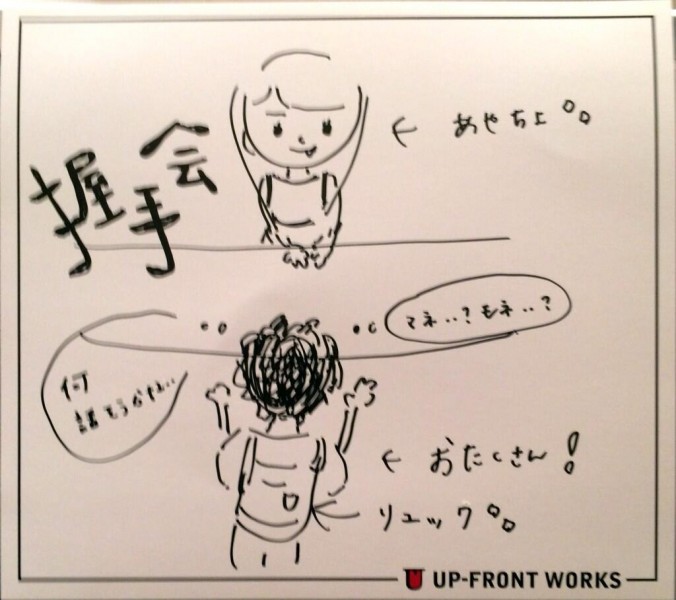 握手会
← あやちょ
マネ‥?モネ‥?
何
話そうかな‥
← おたくさん!
← リュック
UP-FRONT WORKS